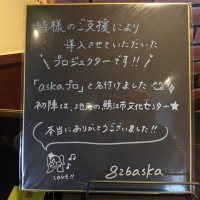 皆様のご支援により
導入させていただいた
プロジェクターです!!
「askaプロ」と名付けました
初陣は、地元の鯖江市文化センター★
本当にありがとうございました!!
LOVE!!
gzbaska